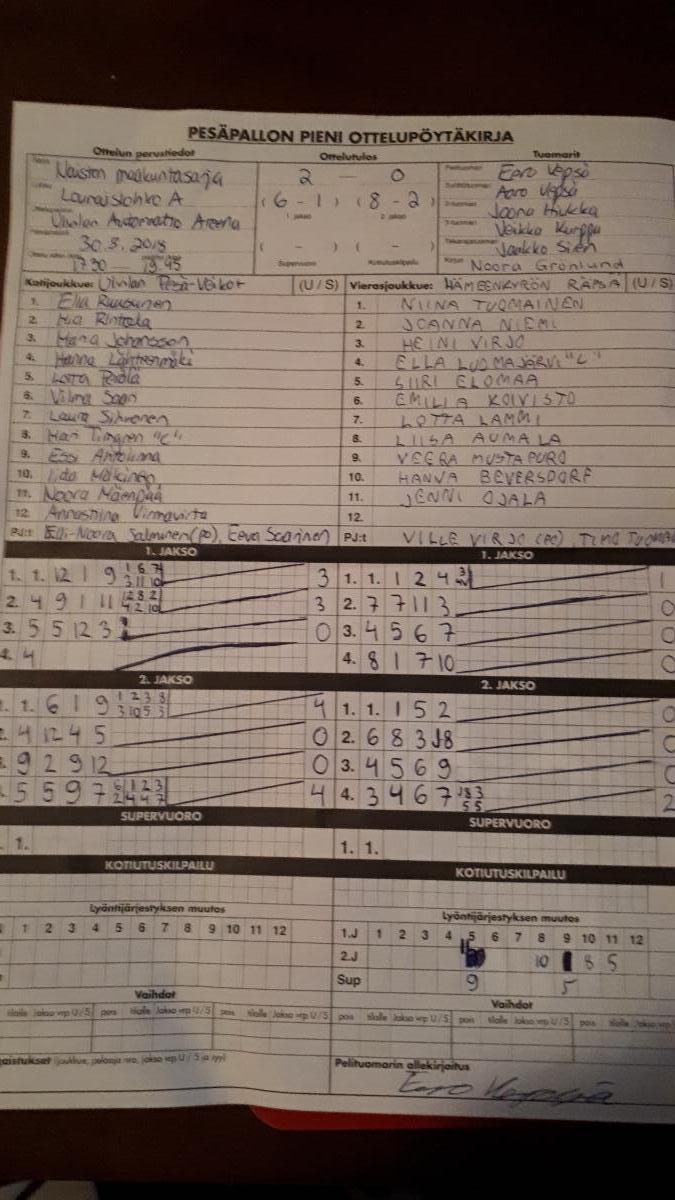 PESÄPALLON PIENI OTTELUPÖYTÄKIRJA
Ottelun perustiedot Ottelutulos Tuomarit
Naisten maakuntasarja 2 – 0 Eero Vepsä
Lounaislohko A (6 - 1) (8 - 2) Aaro Vepsä
1. jakso 2. jakso Joona Hiukka
Ulvilan Automatio Areena Veikko Kurppa
30.5.2018 ( - ) ( - ) Jaakko Sien
1730 1945 Supervuoro Kotiutuskilpailu Noora Grönlund
Kotijoukkue: Ulvilan Pesä-Veikot (U / S) Vierasjoukkue: HÄMEENKYRÖN RÄPSÄ (U / S)
1. Ella Ruusunen 1. NIINA TUOMAINEN
2. Mia Rintala 2. JOANNA NIEMI
3. Maria Johansson 3. HEINI VIRJO
4. Hanna Lähteenmäki 4. ELLA LUOMAJÄRVI "C"
5. Lotta Perälä 5. SIIRI ELOMAA
6. Vilma Saari 6. EMILIA KOIVISTO
7. Laura Sihvonen 7. LOTTA LAMMI
8. Mari Timgren "C" 8. LIISA AUMALA
9. Essi Anttilinna 9. VEERA MUSTAPURO
10. Iida Mäkinen 10. HANNA BEVERSDORF
11. Noora Mäenpää 11. JENNI OJALA
12. Annastiina Virmavirta 12.
PJ:t Elli-Noora Salminen (po), Eeva Saarinen PJ:t VILLE VIRJO (PO), TIMO TUOMAI
1. JAKSO 1. JAKSO
1. 1. 12 1 9 1 6 7 3 11 10 3 1. 1. 1 2 4 3 1
2. 4 9 1 11 12 3 2 4 2 10 3 2. 7 7 11 3 0
3. 5 5 12 3 0 3. 4 5 6 7 0
4. 4 4. 8 1 7 10 0
2. JAKSO 2. JAKSO
1. 1. 6 1 9 1 2 3 8 3 10 5 3 4 1. 1. 1 5 2 0
4 12 4 5 0 2. 6 8 3 8 0
9 2 9 12 0 3. 4 5 6 9 0
5 5 9 7 6 1 2 3 2 4 4 7 4 4. 3 4 6 7 8 3 5 5 2
SUPERVUORO SUPERVUORO
1. 1. 1.
KOTIUTUSKILPAILU KOTIUTUSKILPAILU
Lyöntijärjestyksen muutos Lyöntijärjestyksen muutos
1 2 3 4 5 6 7 8 9 10 11 12 1.J 1 2 3 4 5 6 7 8 9 10 11 12
2.J 10 8 5
Sup 9 5
Vaihdot Vaihdot
tilalle Jakso vrp U / S pois tilalle Jakso vrp U / S pois tilalle Jakso vrp U / S pois tilalle Jakso vrp U / S pois tilalle Jakso vrp U / S pois tilalle
gaistukset (joukkue, pelaaja nro, jakso vrp U / S ja syy) Pelituomarin allekirjoitus
Eero Vepsä